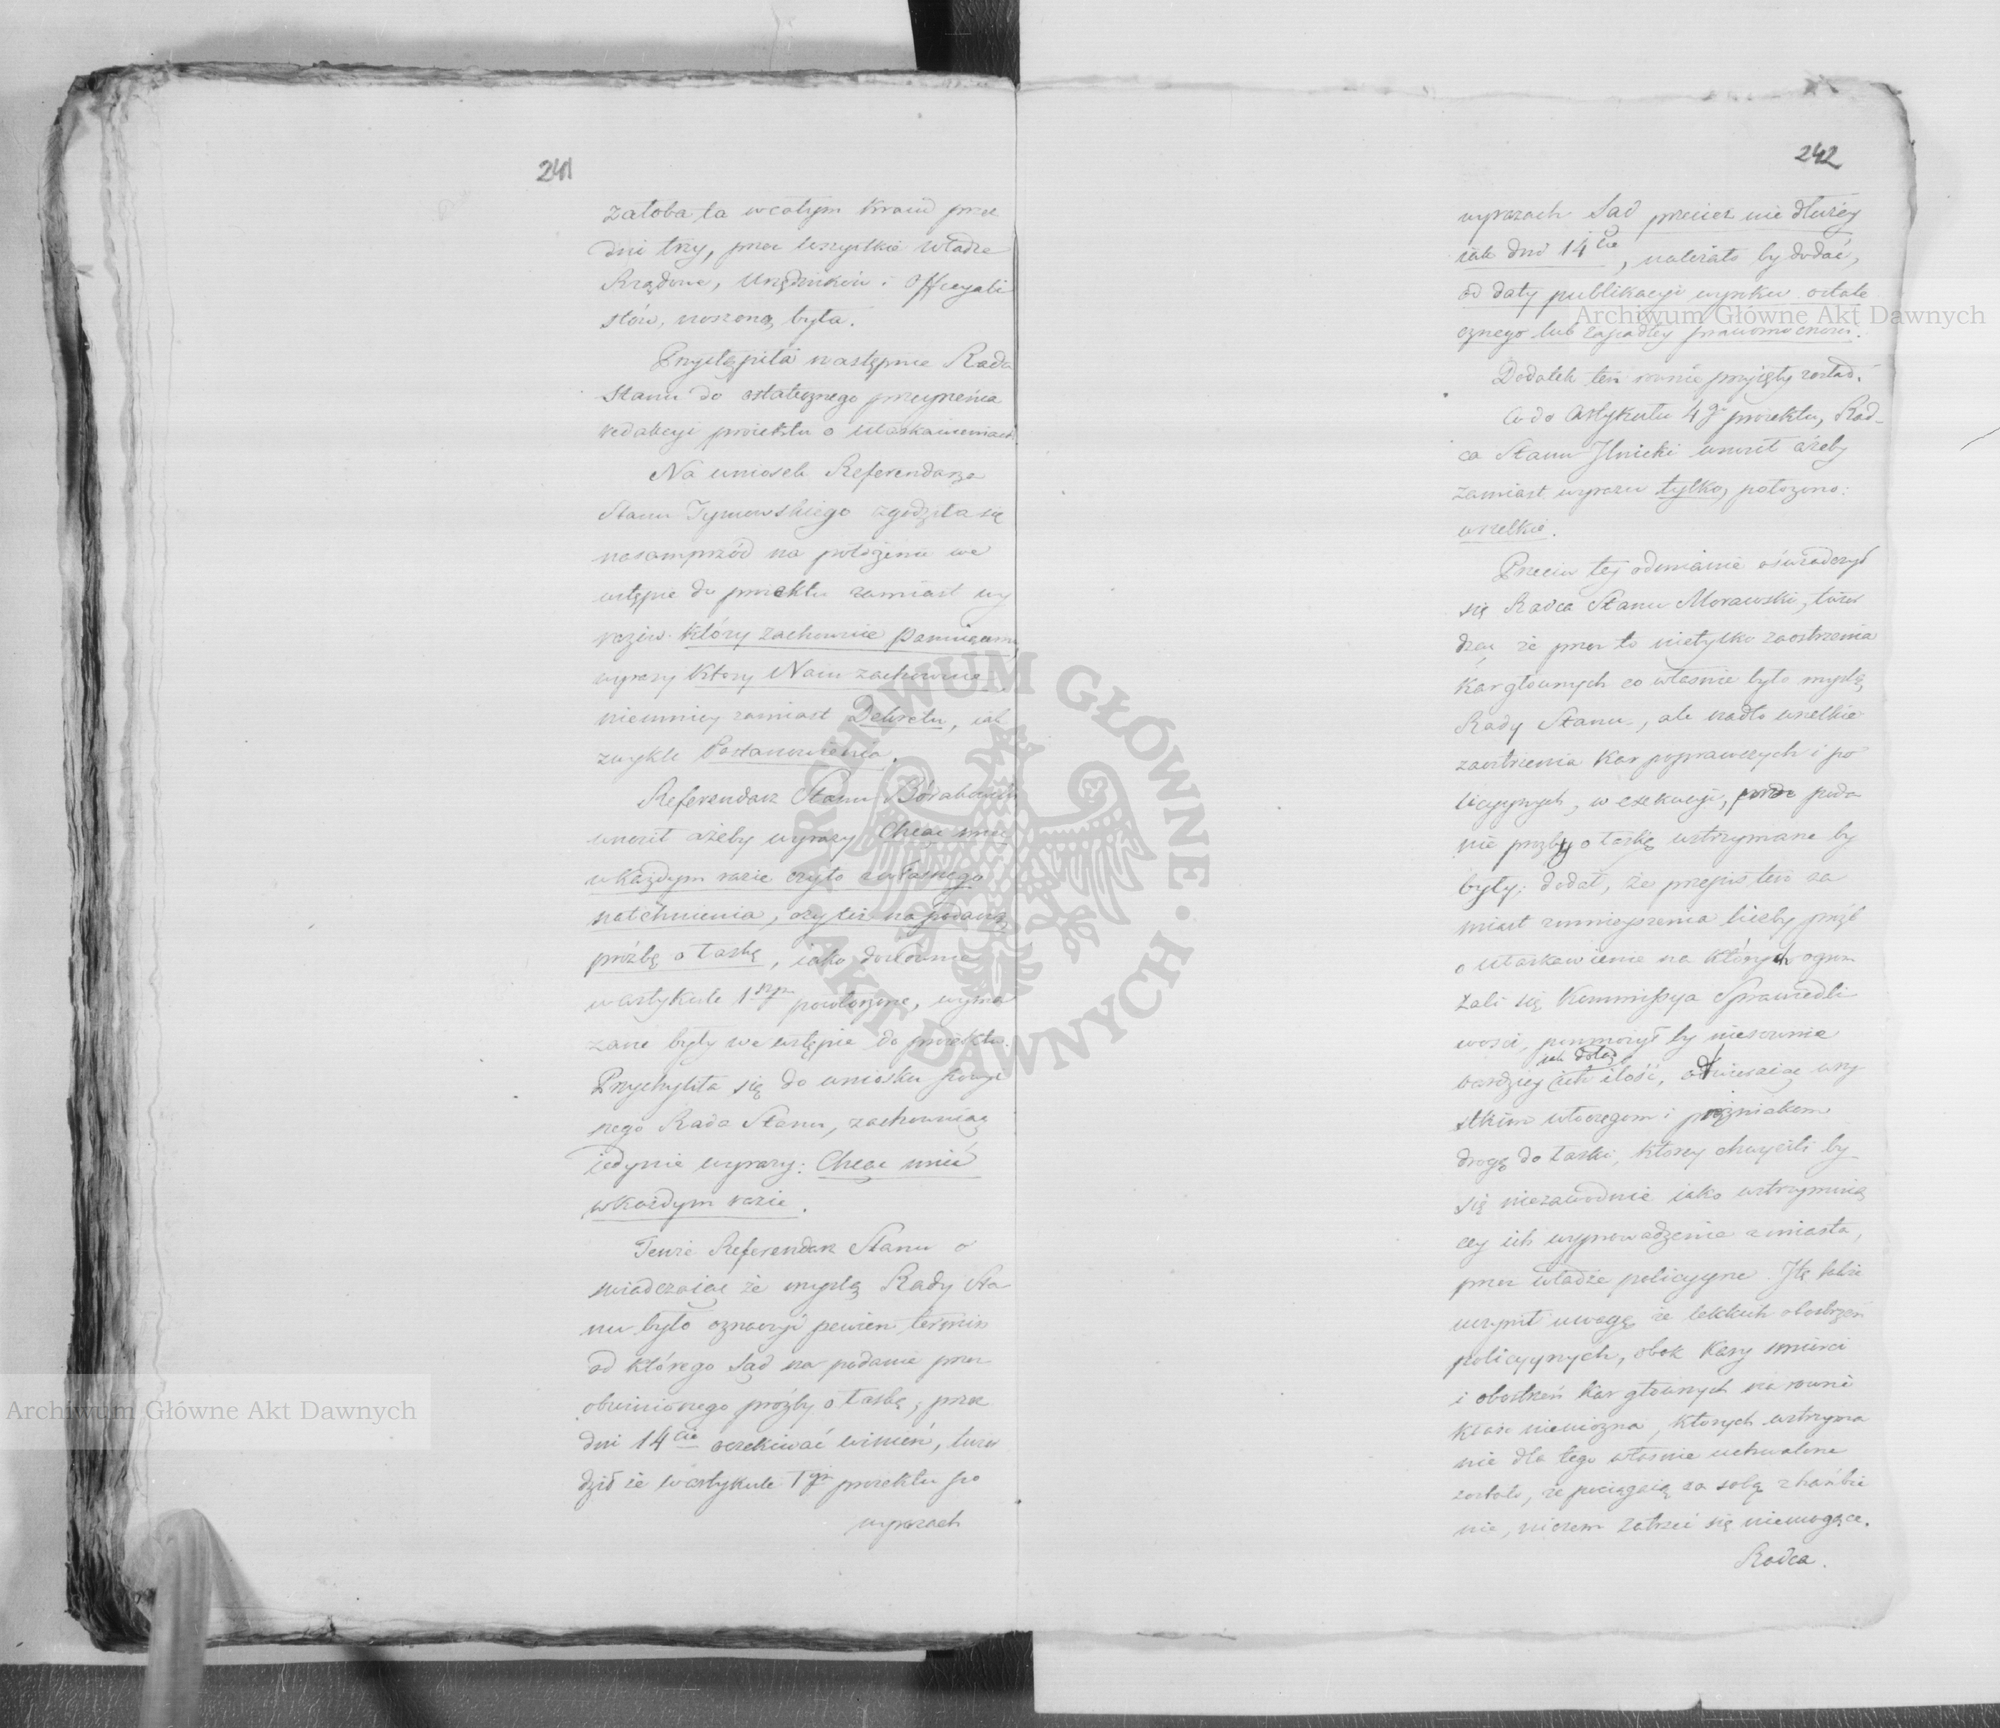 241
żałoba ta w całym Kraiu przez
dni trzy, przez wszystkie Władze
Rządowe, Urzędników i Officyali
stów, noszoną była.
Przystąpiła następnie Rada
Stanu do ostatecznego przeyrzenia
redakcyi proiektu o ułaskawieniach.
Na wniosek Referendarza
Stanu Tymowskiego zgodziła się
nasamprzód na położenie we
wstępie do proiektu zamiast wy
razów. który zachownie Panuiącemu,
wyrazy który Nam zachownie,
niemniey zamiast Dekretu, iak
zwykle Postanowienia.
Referendarz Stanu
wnosił ażeby wyrazy Chcąc mieć
w każdym razie czyto z własnego
natchnienia, czy też na podaną
prózbę o łaskę, iako dosłownie
w artykule 1szym powtórzone, wyma
zane były we wstępie do proiektu.
Przychyliła się do wniosku powyż
szego Rada Stanu, zachowuiąc
iedynie wyrazy: Chcąc mieć
w każdym razie.
Tenże Referendarz Stanu o
świadczaiąc że myślą Rady Sta
nu było oznaczyć pewien termin
od którego Sąd na podanie przez
obwinionego prózby o łaskę, przez
dni 14cie oczekiwać winien, twier
dził że w artykule 1ym proiektu po
wyrazach
242
wyrazach Sąd przecież nie dłużey
iak dni 14cie, należało by dodać,
od daty publikacyi wyroku ostate
cznego lub zapadłey prawomocności.
Dodatek ten przyięty został.
Co do Artykułu 4go proiektu, Rad-
ca Stanu Ilnicki wnosił ażeby
zamiast wyrazu tylko, położono:
wszelkie.
Przeciw tey odmianie oświadczył
się Radca Stanu Morawski, twier
dząc że przez to nietylko zaostrzenia
Kar głównych co właśnie było myślą,
Rady Stanu, ale nadto wszelkie
zaostrzenia Kar poprawczych i po
licyynych, w exekucyi, przez poda
nie prozby o łaskę wstrzymane by
były; dodał, że przepis ten za
miast zmnieyszenia liczby prózb
o ułaskawienie na których ogrom
żali się Kommissya Sprawiedli
wości, pomnożył by niezmiernie
bardziey ich ilość, otwieraiąc wszy
stkim włóczęgom i prożniakom
drogę do łaski, którzy chwycili by
się niezawodnie iako wstrzymuią
cey ich wyprowadzenie z miasta,
przez władze policyyne. Tę także
uczynił uwagę że lekkich obostrzeń
policyynych, obok Kary śmierci
i obostrzeń kar głównych na równi
kłaść nie można, których wstrzyma
nie dla tego właśnie uchwalone
zostało, że pociągaią za sobą zhańbie
nie, niczem zatrzeć się niemogące.
Radca.
Archiwum Główne Akt Dawnych
Archiwum Główne Akt Dawnych
ARCHIWUM GŁÓWNE · AKT DAWNYCH ·